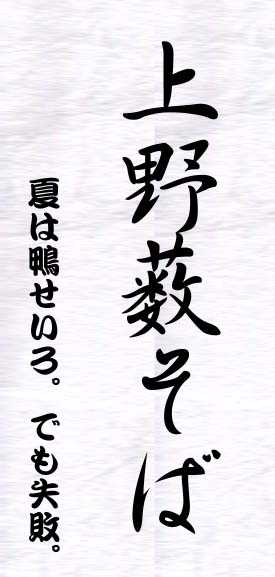 上野薮そば
夏は鴨せいろ。でも失敗。